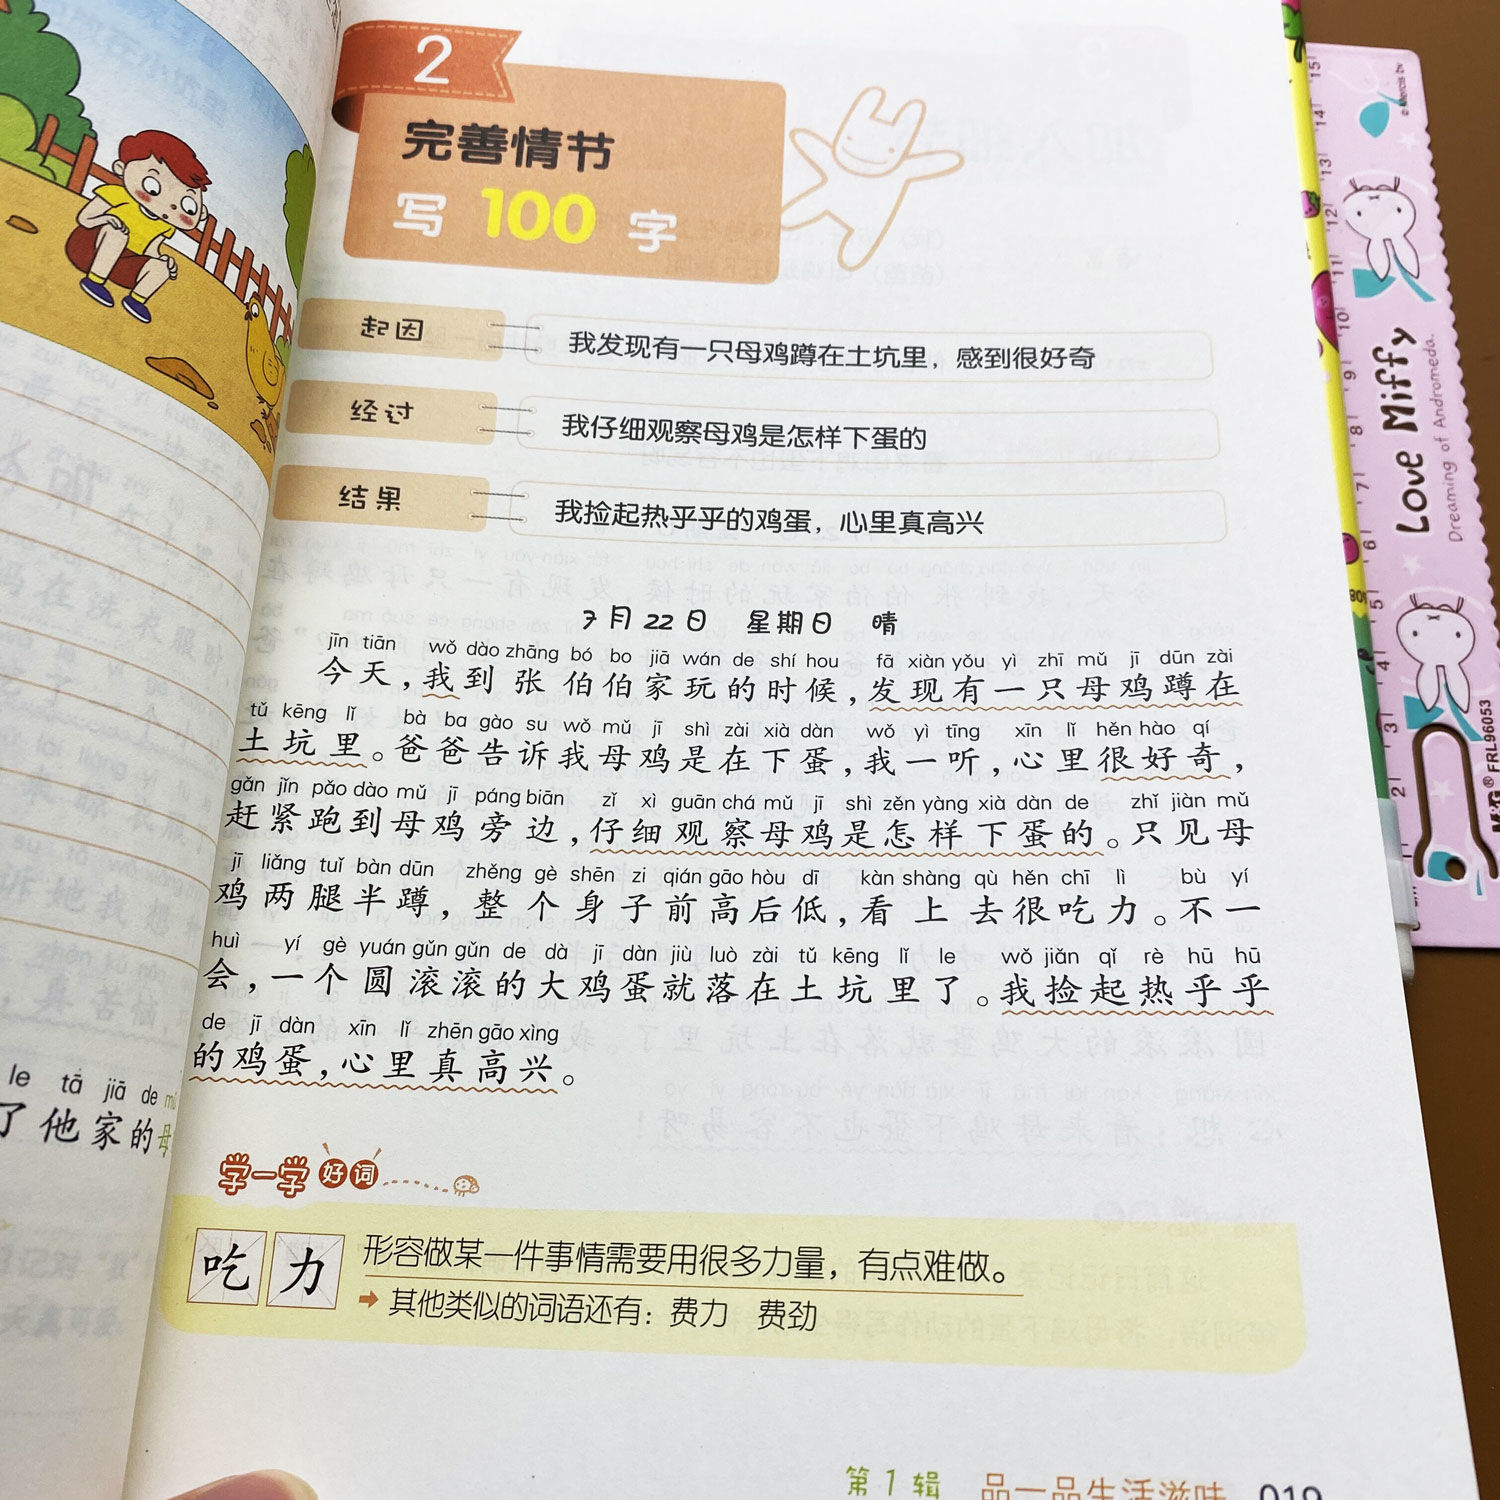 2
完善情节
写 100 字
起因
我发现有一只母鸡蹲在土坑里，感到很好奇
经过
我仔细观察母鸡是怎样下蛋的
结果
我捡起热乎乎的鸡蛋，心里真高兴
7月22日 星期日 晴
jīn tiān wǒ dào zhāng bó bo jiā wán de shí hou fā xiàn yǒu yì zhī mǔ jī dūn zài
今天，我到张伯伯家玩的时候，发现有一只母鸡蹲在
tǔ kēng lǐ bà ba gào su wǒ mǔ jī shì zài xià dàn wǒ yì tīng xīn lǐ hěn hào qí
土坑里。爸爸告诉我母鸡是在下蛋，我一听，心里很好奇，
gǎn jǐn pǎo dào mǔ jī páng biān zǐ xì guān chá mǔ jī shì zěn yàng xià dàn de zhǐ jiàn mǔ
赶紧跑到母鸡旁边，仔细观察母鸡是怎样下蛋的。只见母
jī liǎng tuǐ bàn dūn zhěng gè shēn zi qián gāo hòu dī kàn shàng qù hěn chī lì bù yí
鸡两腿半蹲，整个身子前高后低，看上去很吃力。不一
huì yí gè yuán gǔn gǔn de dà jī dàn jiù luò zài tǔ kēng lǐ le wǒ jiǎn qǐ rè hū hū
会，一个圆滚滚的大鸡蛋就落在土坑里了。我捡起热乎乎
de jī dàn xīn lǐ zhēn gāo xìng
的鸡蛋，心里真高兴。
学一学 好词
吃力
形容做某一件事情需要用很多力量，有点难做。
➡ 其他类似的词语还有：费力 费劲
第1辑 品一品生活滋味 019
le tā jiā de
了他家的母
Love Miffy
Dreaming of Andromeda.
© Mercis bv
M&G® FRL96053
15
14
13
12
11
10
9
8
7
6
5
4
3
2